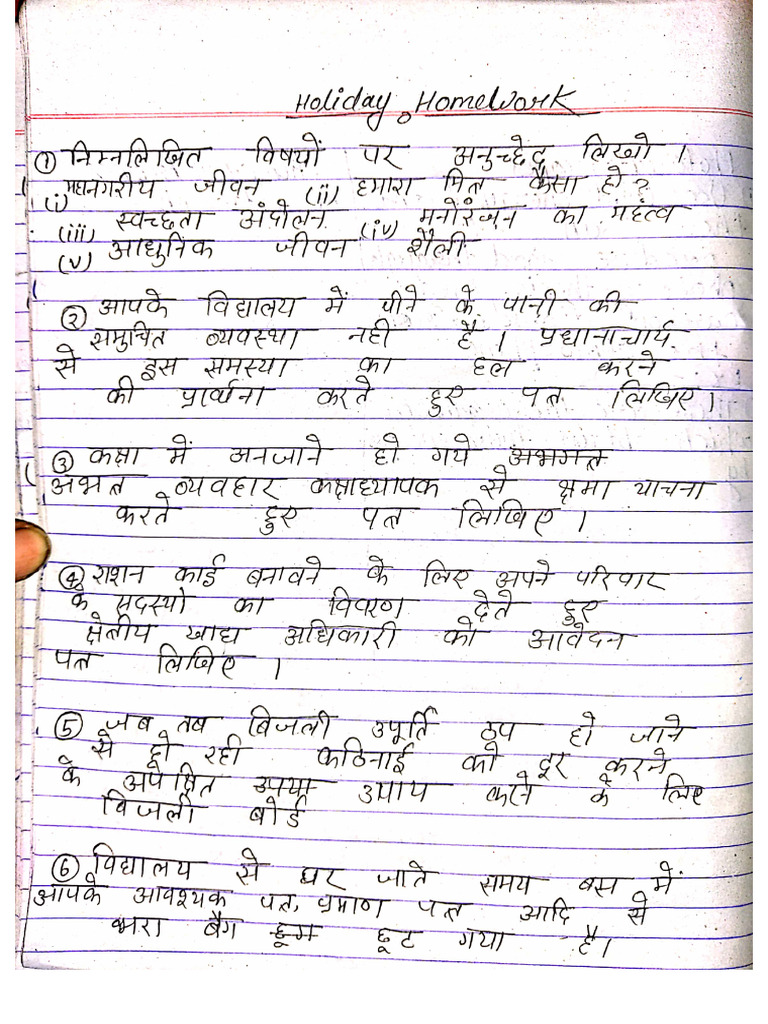 Holiday Homework
① निम्नलिखित विषयों पर अनुच्छेद लिखो ।
(i) महानगरीय जीवन (ii) हमारा मित्र कैसा हो ?
(iii) स्वच्छता अंदोलन (iv) मनोरंजन का महंत्व
(v) आधुनिक जीवन शैली
② आपके विद्यालय में पीने के पानी की
समुचित व्यवस्था नही है । प्रधानाचार्य
से इस समस्या का हल करने
की प्रार्थना करते हुए पत्र लिखिए ।
③ कक्षा में अनजाने हो गये
अभत व्यवहार कक्षाध्यापक से क्षमा याचना
करते हुए पत्र लिखिए ।
④ राशन कार्ड बनावने के लिए अपने परिवार
के सदस्यो का विवरण देते हुए
क्षेत्रीय खाद्य अधिकारी को आवेदन
पत्र लिखिए ।
⑤ जब तब बिजली उपूर्ति ठप हो जाने
से हो रही कठिनाई को दूर करने
के अपेक्षित उपया उपाय करने के लिए
बिजली बोर्ड
⑥ विद्यालय से घर जाते समय बस में
आपके आवश्यक पत्र, प्रमाण पत्र आदि से
भरा बैग छूट गया है।